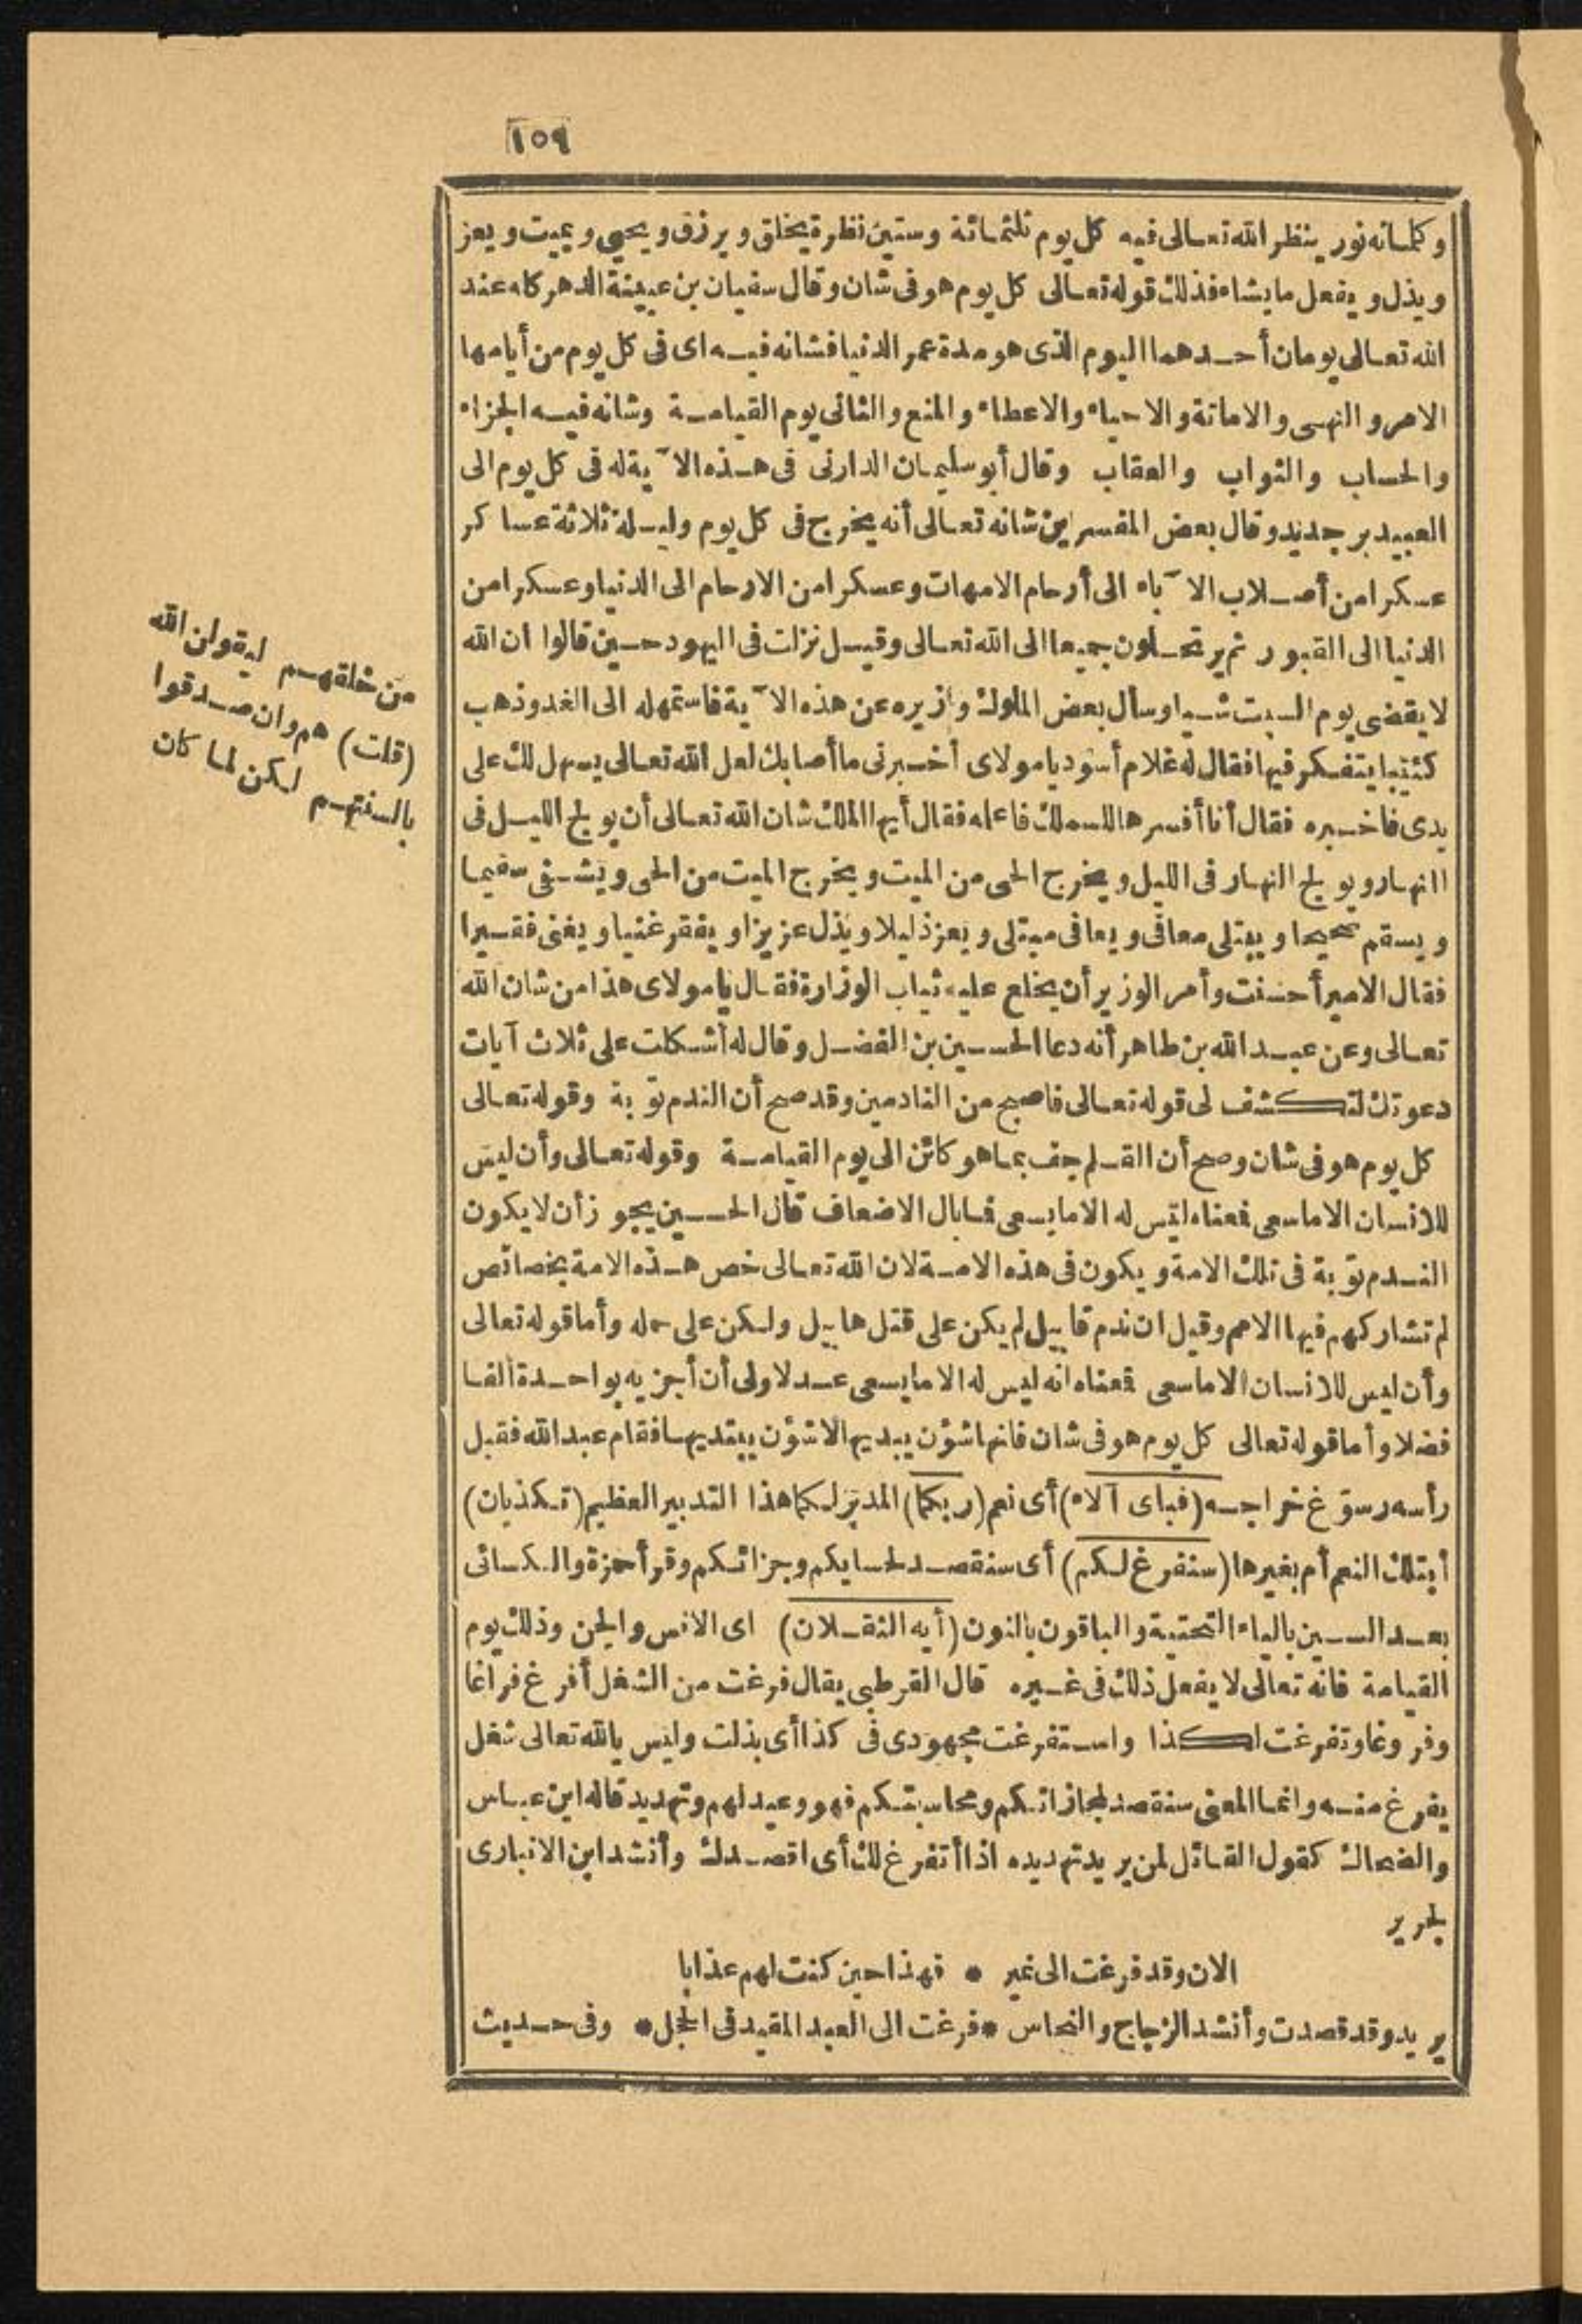 ١٥٩
وكلماته نور ينظر الله تعالى فيه كل يوم ثلثمائة وستين نظرة يخلق ويرزق ويحيي ويميت ويعز
ويذل ويفعل ما يشاء فذلك قوله تعالى كل يوم هو فى شان وقال سفيان بن عيينة الدهر كله عند
الله تعالى يومان أحدهما اليوم الذى هو مدة عمر الدنيا فشانه فيه اى فى كل يوم من أيامها
الامر والنهى والاماتة والاحياء والاعطاء والمنع والثانى يوم القيامة وشانه فيه الجزاء
والحساب والثواب والعقاب وقال أبو سليمان الدارنى فى هذه الآية له فى كل يوم الى
العبيد بر جديد وقال بعض المفسرين شانه تعالى أنه يخرج فى كل يوم وليلة ثلاثة عساكر
عسكرا من أصلاب الآباء الى أرحام الامهات وعسكرا من الارحام الى الدنيا وعسكرا من
الدنيا الى القبور ثم يرتحلون جميعا الى الله تعالى وقيل نزلت فى اليهود حين قالوا ان الله
لا يقضى يوم السبت شيا وسأل بعض الملوك وزيره عن هذه الآية فاستمهله الى الغد وذهب
كئيبا يتفكر فيها فقال له غلام أسود يا مولاى أخبرنى ما أصابك لعل الله تعالى يسهل لك على
يدى فاخبره فقال أنا أفسرها للملك فاعلمه فقال أيها الملك شان الله تعالى أن يولج الليل فى
النهار ويولج النهار فى الليل ويخرج الحى من الميت ويخرج الميت من الحى ويشفى سقيما
ويسقم صحيحا ويبتلى معافى ويعافى مبتلى ويعز ذليلا ويذل عزيزا ويفقر غنيا ويغنى فقيرا
فقال الامير أحسنت وأمر الوزير أن يخلع عليه ثياب الوزارة فقال يا مولاى هذا من شان الله
تعالى وعن عبد الله بن طاهر أنه دعا الحسين بن الفضل وقال له أشكلت على ثلاث آيات
دعوتك لتكشف لى قوله تعالى فاصبح من النادمين وقد صح أن الندم توبة وقوله تعالى
كل يوم هو فى شان وصح أن القلم جف بما هو كائن الى يوم القيامة وقوله تعالى وأن ليس
للانسان الا ما سعى فمعناه ليس له الا ما يسعى فما بال الاضعاف قال الحسين يجوز أن لا يكون
الندم توبة فى تلك الامة ويكون فى هذه الامة لان الله تعالى خص هذه الامة بخصائص
لم تشاركهم فيها الامم وقيل ان ندم قابيل لم يكن على قتل هابيل ولكن على حمله وأما قوله تعالى
وأن ليس للانسان الا ما سعى فمعناه انه ليس له الا ما يسعى عدلا ولى أن أجزيه بواحدة ألفا
فضلا وأما قوله تعالى كل يوم هو فى شان فانها شؤن يبديها لا شؤن يبتديها فقام عبد الله فقبل
رأسه وسوّغ خراجه (فباى آلاء) أى نعم (ربكما) المدبّر لكما هذا التدبير العظيم (تكذبان)
أبتلك النعم أم بغيرها (سنفرغ لكم) أى سنقصد لحسابكم وجزائكم وقرأ حمزة والكسائى
بعد السين بالياء التحتية والباقون بالنون (أيه الثقلان) اى الانس والجن وذلك يوم
القيامة فانه تعالى لا يفعل ذلك فى غيره قال القرطبى يقال فرغت من الشغل أفرغ فراغا
وفروغا وتفرغت لكذا واستفرغت مجهودى فى كذا أى بذلت وليس بالله تعالى شغل
يفرغ منه وانما المعنى سنقصد لمجازاتكم ومحاسبتكم فهو وعيد لهم وتهديد قاله ابن عباس
والضحاك كقول القائل لمن يريد تهديده اذا أتفرغ لك أى اقصدك وأنشد ابن الانبارى
لجرير
الان وقد فرغت الى نمير * فهذا حين كنت لهم عذابا
يريد وقد قصدت وأنشد الزجاج والنحاس * فرغت الى العبد المقيد فى الحجل * وفى حديث
من خلقهم ليقولن الله
(قلت) هم وان صدقوا
بالسنتهم لكن لما كان